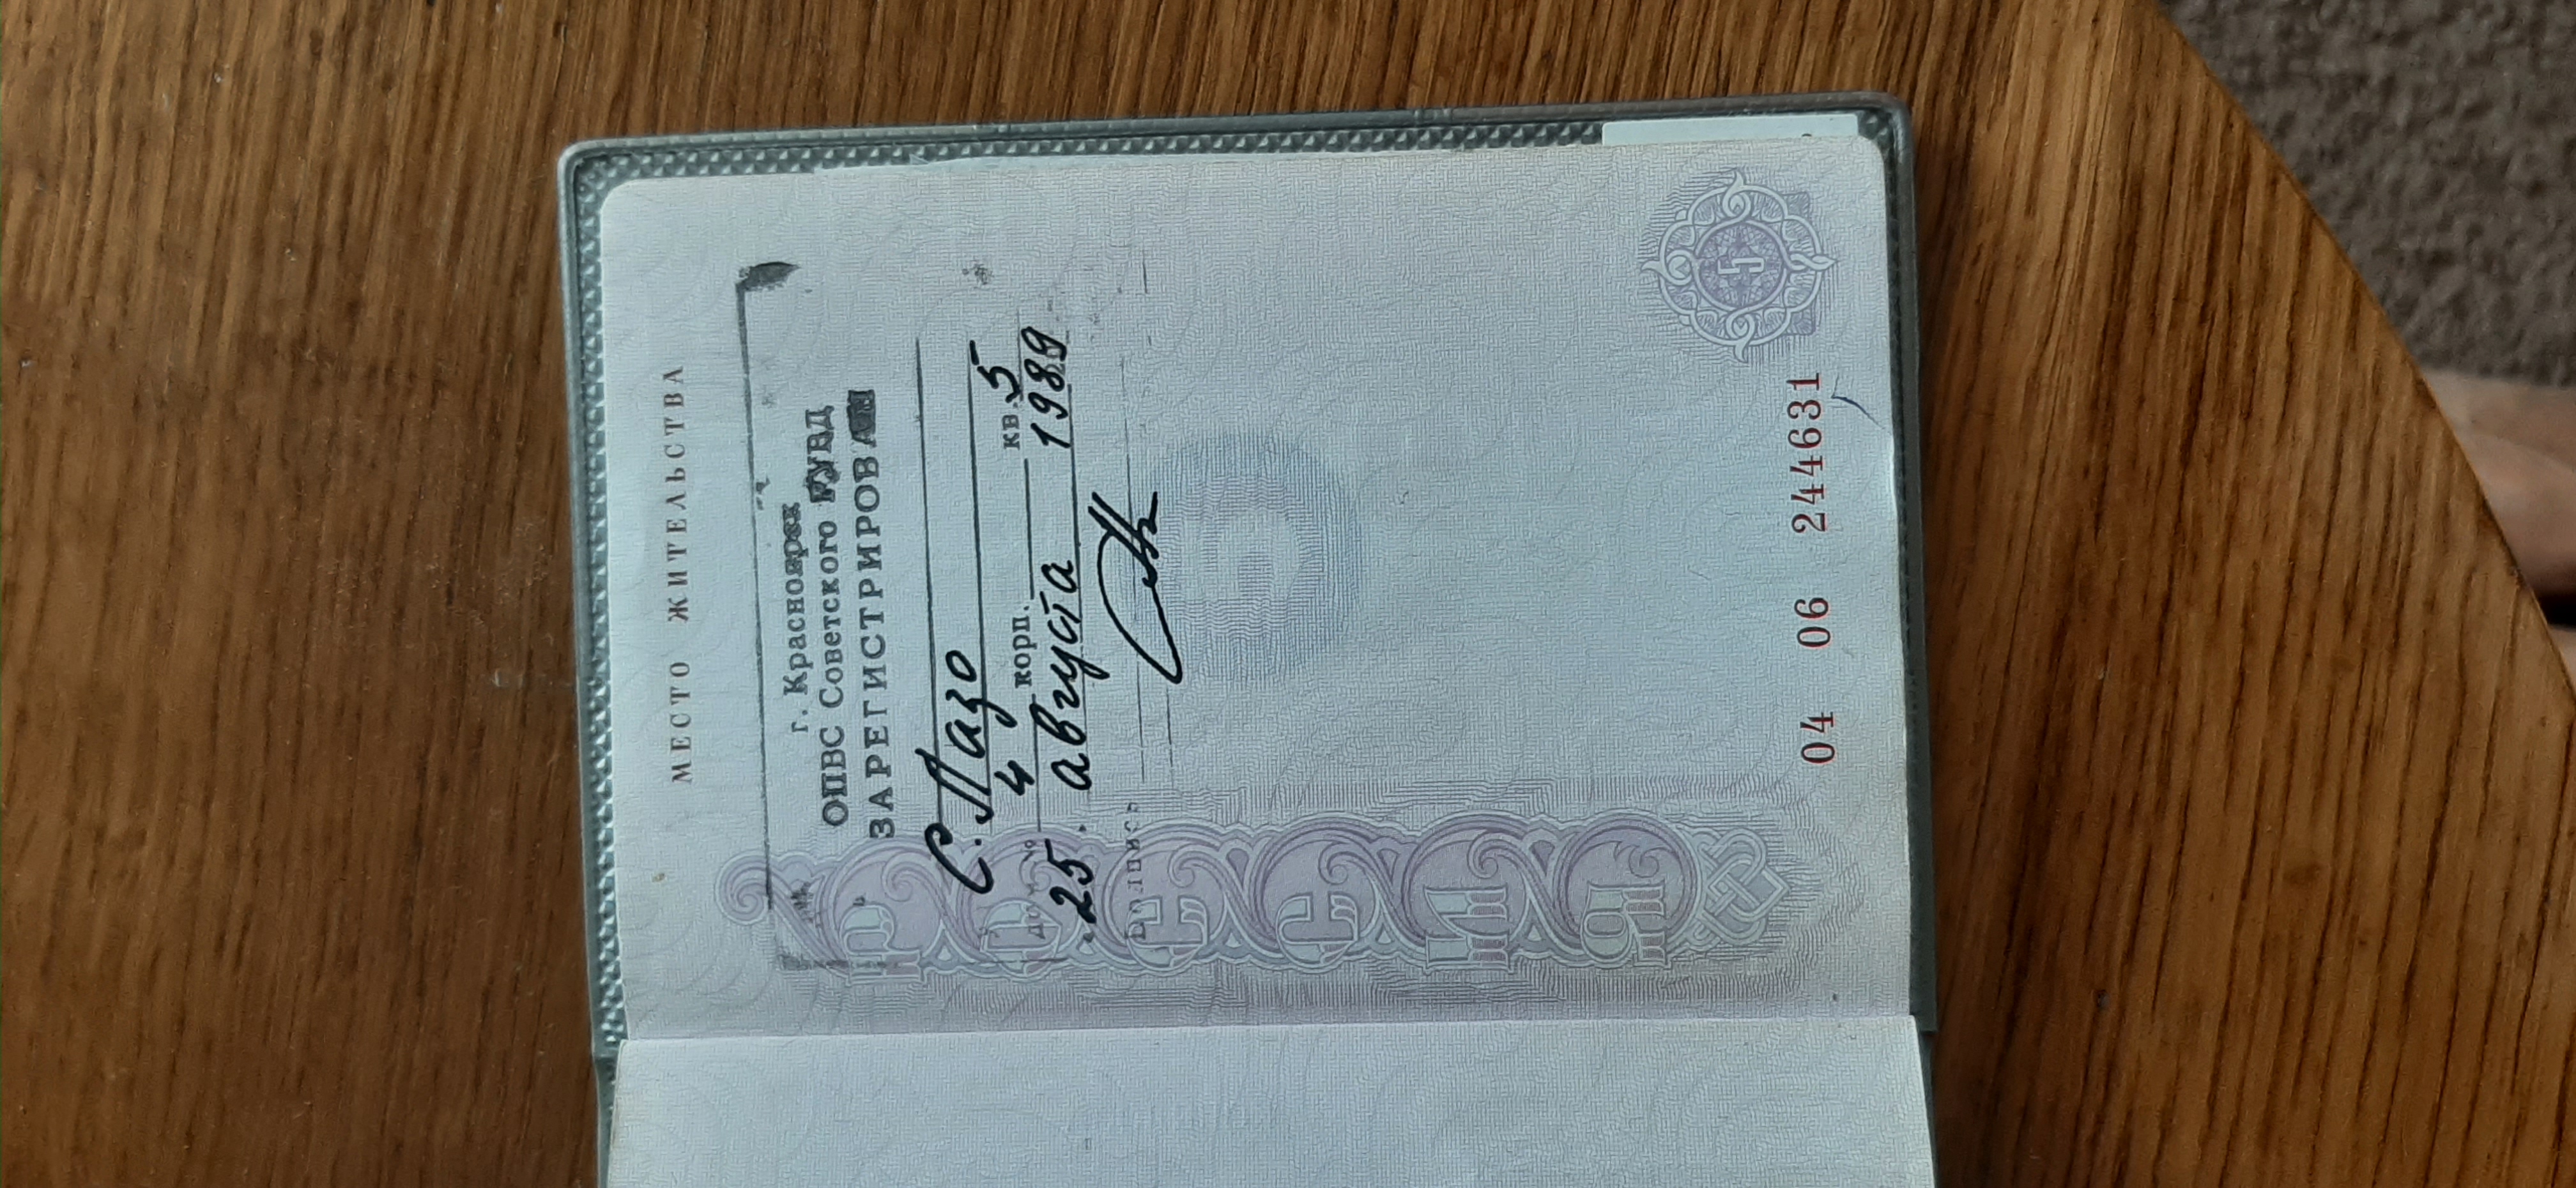 МЕСТО ЖИТЕЛЬСТВА
г. Красноярск
ОПВС Советского РУВД
ЗАРЕГИСТРИРОВАН
С. Лазо
дом № 4 корп. кв. 5
25. августа 1989
Подпись
РОССИЯ
5
5
04 06 244631